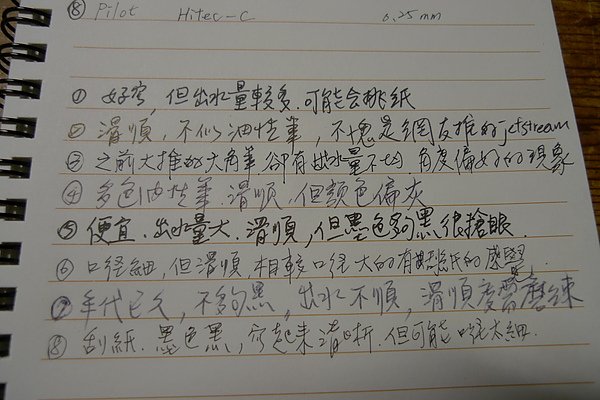 ⑧ Pilot Hitec-C 0.25mm
① 好寫, 但出水量較多. 可能會挑紙
② 滑順, 不似油性筆, 不愧是網友推的jetstream
③ 之前大推的大角筆卻有出水量不均 角度偏好的現象
④ 多色油性筆. 滑順, 但顏色偏灰
⑤ 便宜. 出水量大. 滑順, 但墨色夠黑很搶眼.
⑥ 口径細, 但滑順, 相較口径大的有刮紙的感覺.
⑦ 年代已久, 不夠黑, 出水不順, 滑順度需磨練
⑧ 刮紙. 墨色黑, 寫起來清晰. 但可能口径太細.